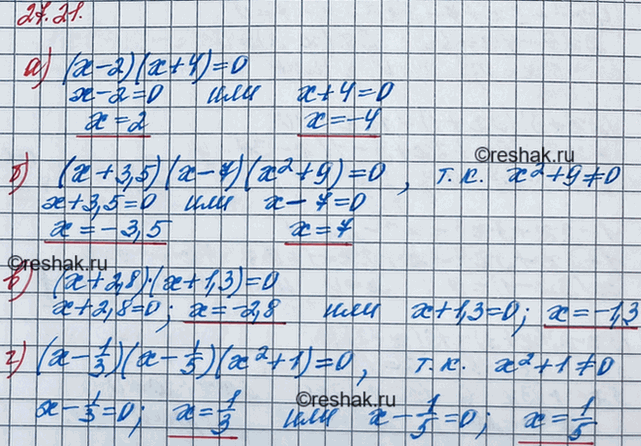 27.21.
а) (x-2)(x+4)=0
x-2=0 или x+4=0
x=2 x=-4
©reshak.ru
б) (x+3,5)(x-7)(x²+9)=0, т.к. x²+9≠0
x+3,5=0 или x-7=0
x=-3,5 x=7
©reshak.ru
в) (x+2,8)·(x+1,3)=0
x+2,8=0; x=-2,8 или x+1,3=0; x=-1,3
г) (x-1/3)(x-1/5)(x²+1)=0, т.к. x²+1≠0
©reshak.ru
x-1/3=0; x=1/3 или x-1/5=0; x=1/5